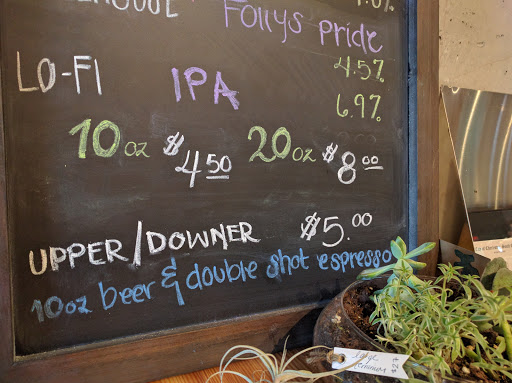 Follys Pride
4.5%
LO-FI IPA
6.9%
10oz $4.50 20oz $8.00
UPPER/DOWNER $5.00
10oz beer & double shot espresso
Large